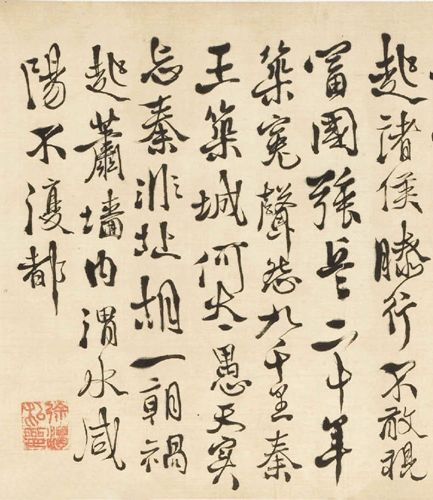 起諸侯膝行不敢視
富國強兵二十年
築冤聲九千里秦
王築城何太愚天實
忘秦非北胡一朝禍
起蕭墻内渭水咸
陽不復都